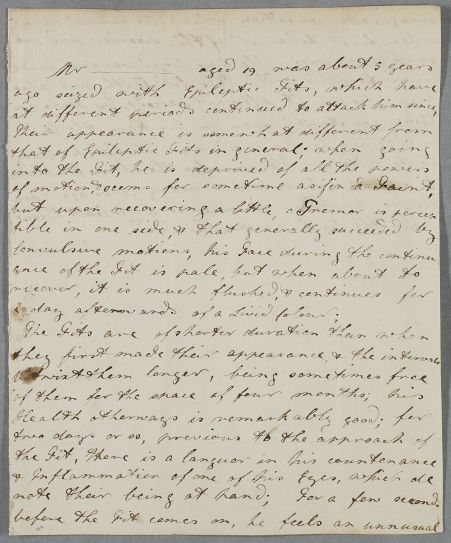 Mr ———— aged 19 was about 5 years
ago seized with Epileptic Fits, which have
at different periods continued to attack him since,
Their appearance is somewhat different from
that of Epileptic Fits in general; when going
into the Fit, he is deprived of all the powers
of motion & seems for sometime as if in a Faint,
but upon recovering a little, a Tremor is percep
tible in one side, & that generally succeeded by
Convulsive motions, his Face during the continu
ance of the Fit is pale, but when about to
recover, it is much flushed, & continues for
a day afterwards of a Livid Colour;
The Fits are of shorter duration than when
they first made their appearance & the intervals
betwixt them longer, being sometimes free
of them for the space of four months; his
Health otherways is remarkably good; for
two days or so, previous to the approach of
the Fit, there is a languor in his countenance
& Inflammation of one of his Eyes, which de
note their being at hand; For a few seconds
before the Fit comes on, he feels an unnusual